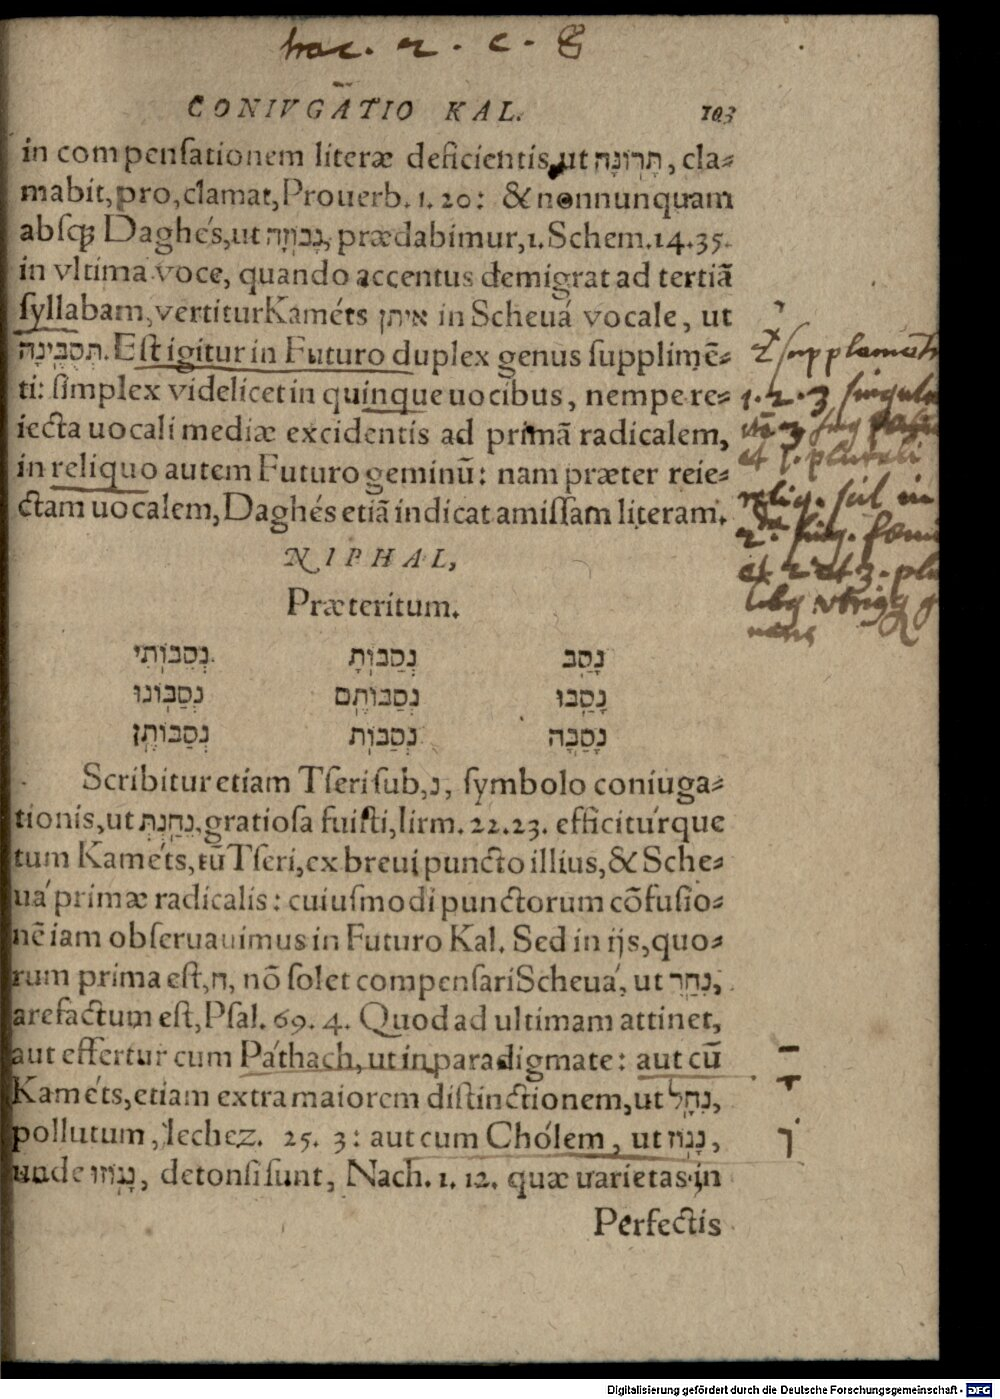 hoc. 2. c. 8
CONIVGATIO KAL. 103
in compenſationem literæ deficientis, ut תָּרוֹנָּה, cla-
mabit, pro, clamat, Prouerb. 1. 20: & nonnunquam
abſq; Daghés, ut נָבֹזָה, prædabimur, 1. Schem. 14. 35.
in vltima voce, quando accentus demigrat ad tertiã
ſyllabam, vertitur Kaméts איתן in Scheuá vocale, ut
תְּסֻבֶּינָה. Eſt igitur in Futuro duplex genus ſupplimẽ-
ti: ſimplex videlicet in quinque uocibus, nempe re-
iecta uocali mediæ excidentis ad primã radicalem,
in reliquo autem Futuro geminũ: nam præter reie-
ctam uocalem, Daghés etiã indicat amiſſam literam.
1. 2. 3 ſingula
et 1. plurali
relig. ſcil in
2. ſing. fœmi
et 2 et 3. plu
NIPHAL,
Præteritum.
נָסַב נְסַבּוֹתָ נְסַבּוֹתִי
נָסַבּוּ נְסַבּוֹתֶם נְסַבּוֹנוּ
נָסַבָּה נְסַבּוֹת נְסַבּוֹתֶן
Scribitur etiam Tſeri ſub, נ, ſymbolo coniuga-
tionis, ut נֵחַנְתְּ, gratioſa fuiſti, Iirm. 22. 23. efficitúrque
tum Kaméts, tũ Tſeri, ex breui puncto illius, & Sche-
uá primæ radicalis: cuiuſmodi punctorum cõfuſio-
nẽ iam obſeruauimus in Futuro Kal. Sed in ijs, quo-
rum prima eſt, ח, nõ ſolet compenſari Scheuá, ut נִחַר,
arefactum eſt, Pſal. 69. 4. Quod ad ultimam attinet,
aut effertur cum Páthach, ut in paradigmate: aut cũ
Kaméts, etiam extra maiorem diſtinctionem, ut נִחָל,
pollutum, Iechez. 25. 3: aut cum Chólem, ut נָגֹז,
unde נָגֹזּוּ, detonſi ſunt, Nach. 1. 12. quæ uarietas in
Perfectis
Digitalisierung gefördert durch die Deutsche Forschungsgemeinschaft - DFG